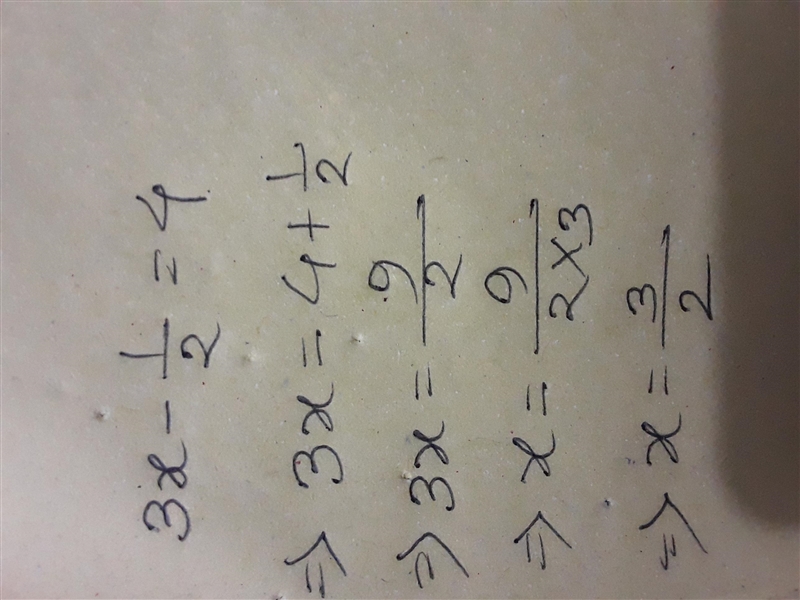 3x - 1/2 = 4
⇒ 3x = 4 + 1/2
⇒ 3x = 9/2
⇒ x = 9/2×3
⇒ x = 3/2